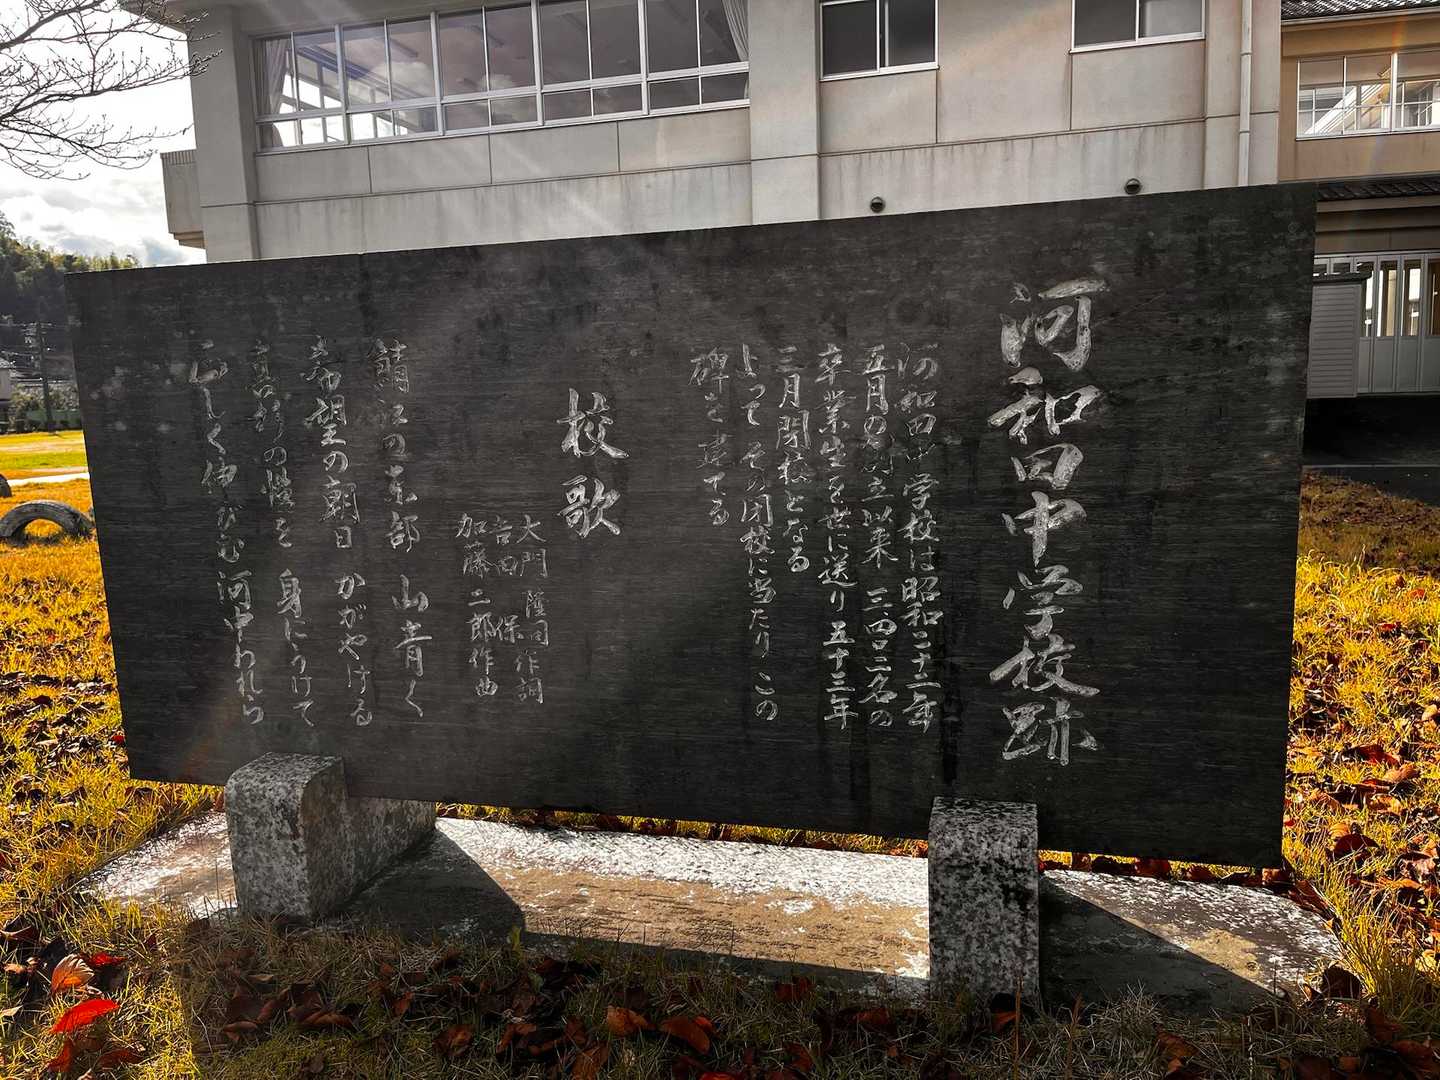 河和田中学校跡
河和田中学校は昭和二十二年
五月の創立以来 三、四〇二名の
卒業生を世に送り五十三年
三月閉校となる
よって その閉校に当たり この
碑を建てる
校歌
大門 隆司
吉田 保 作詞
加藤 二郎 作曲
鯖江の東部 山青く
希望の朝日 かがやける
高杉の怪を 身にうけて
正しく伸びむ 河中われら